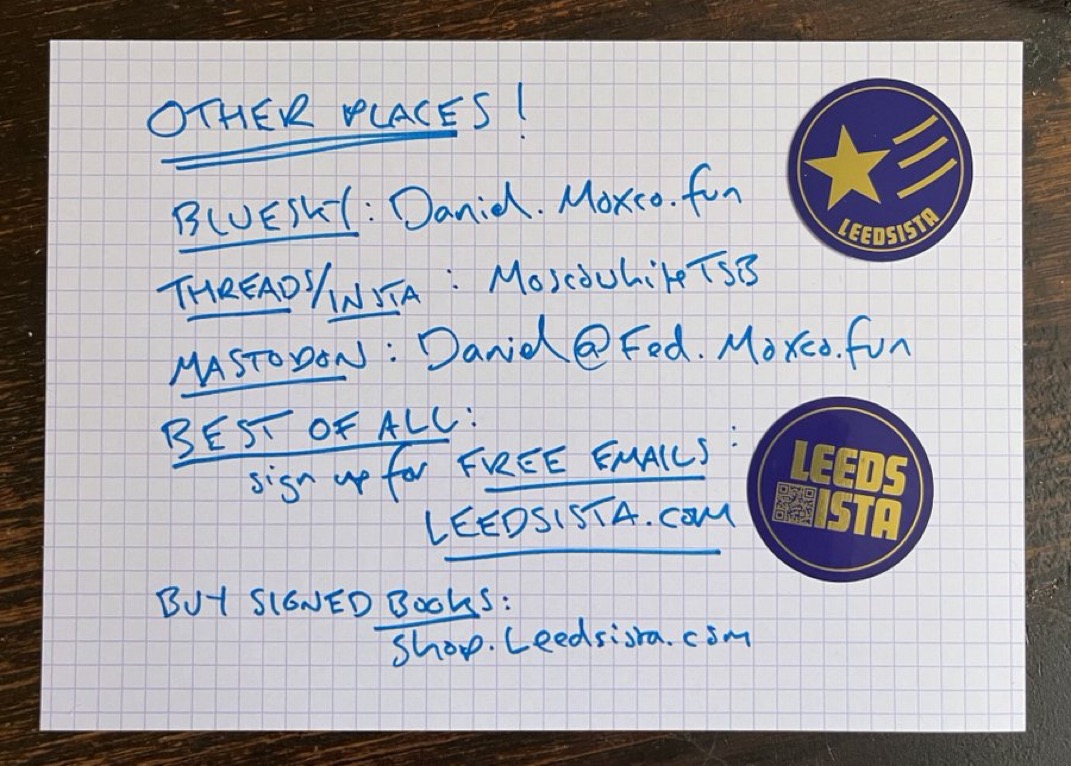 OTHER PLACES!
BLUESKY: Daniel.Moxco.fun
THREADS/INSTA: MoscowhiteTSB
MASTODON: Daniel@Fed.Moxco.fun
BEST OF ALL:
sign up for FREE EMAILS:
LEEDSISTA.com
BUY SIGNED BOOKS:
shop.Leedsista.com
LEEDSISTA
LEEDS
ISTA